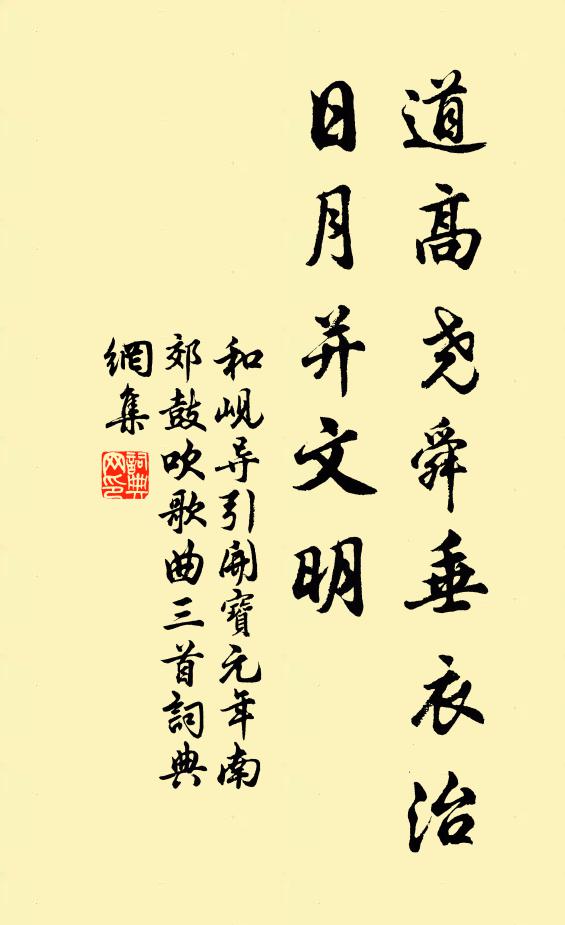 道高尧舜垂衣治
日月并文明
和岘导引開寶元年南
郊鼓吹歌曲三首詞典
網集
詞典網印